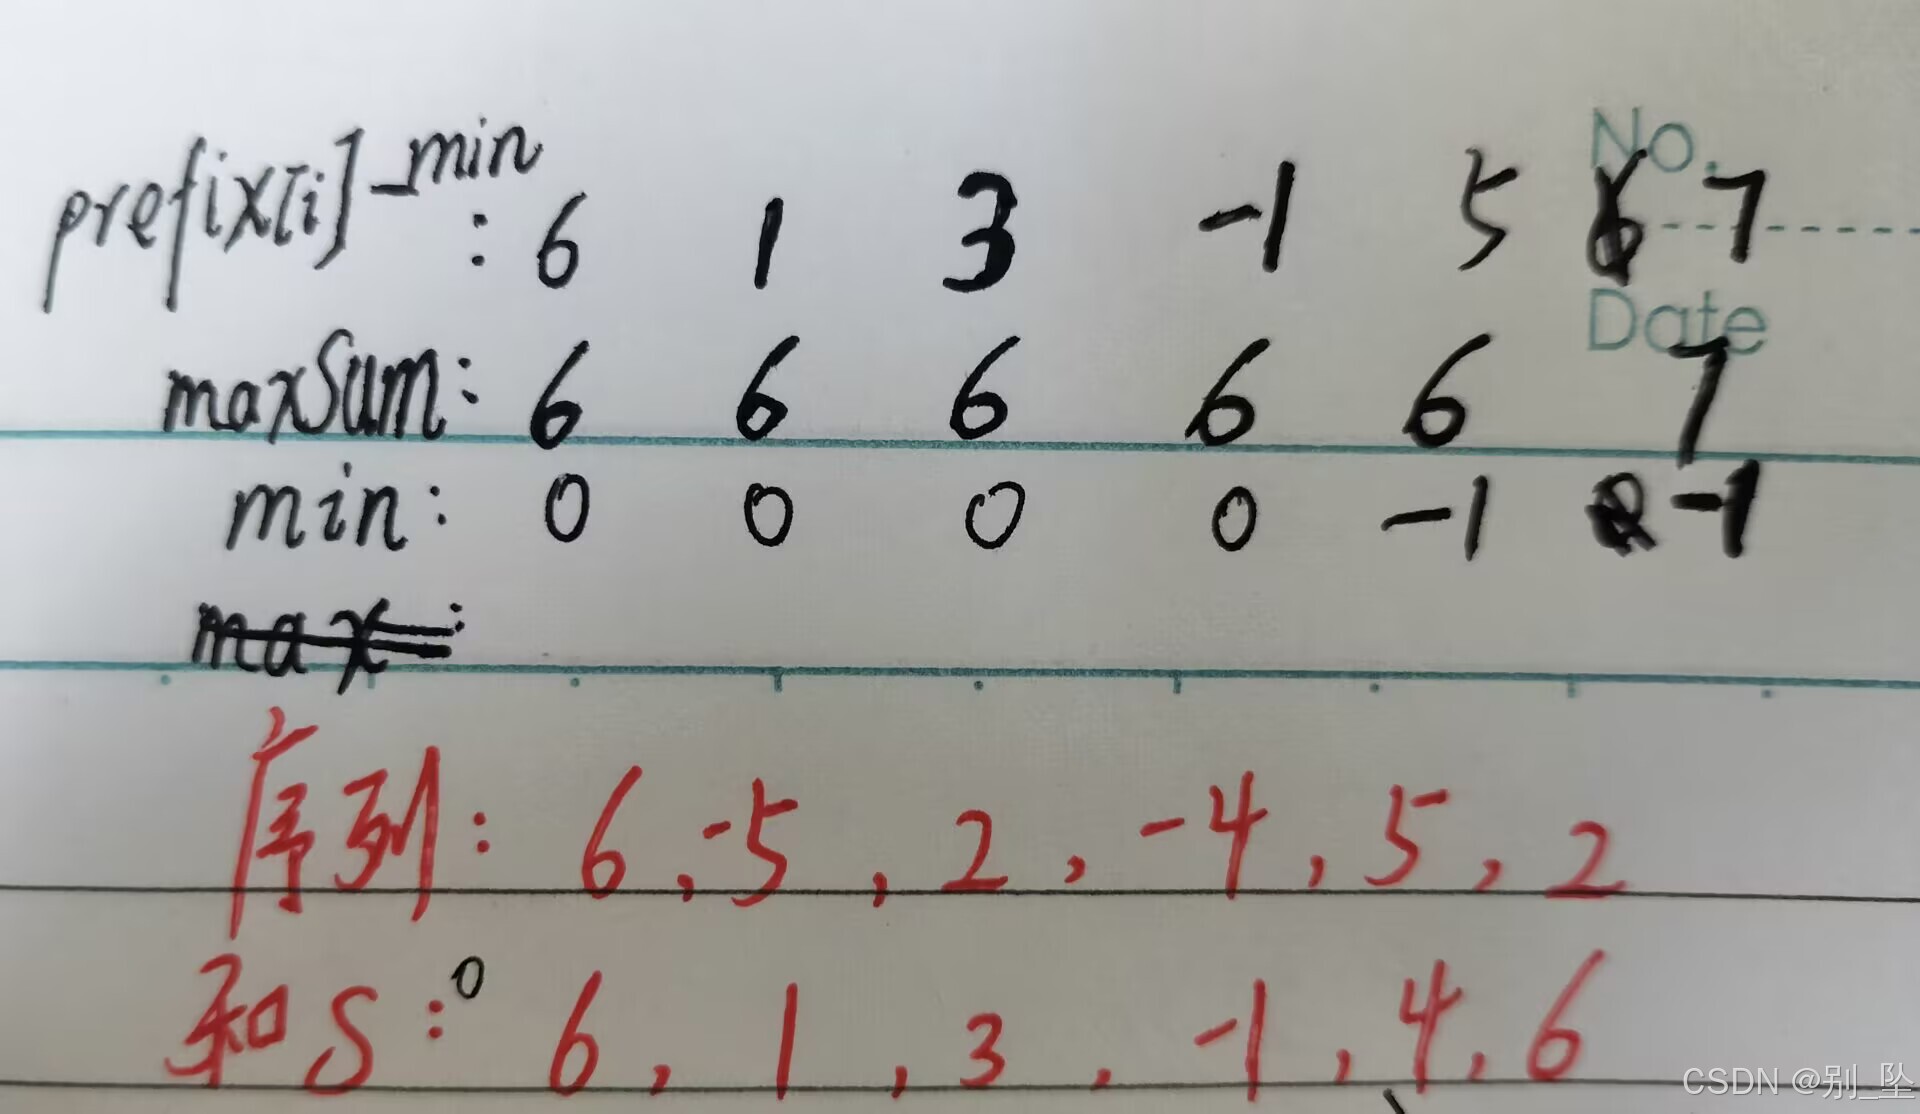 No.
prefix[i]-min : 6 1 3 -1 5 7
Date
maxSum: 6 6 6 6 6 7
min: 0 0 0 0 -1 -1
max:
序列: 6,-5,2,-4,5,2
和S:0 6,1,3,-1,4,6
CSDN @别_坠